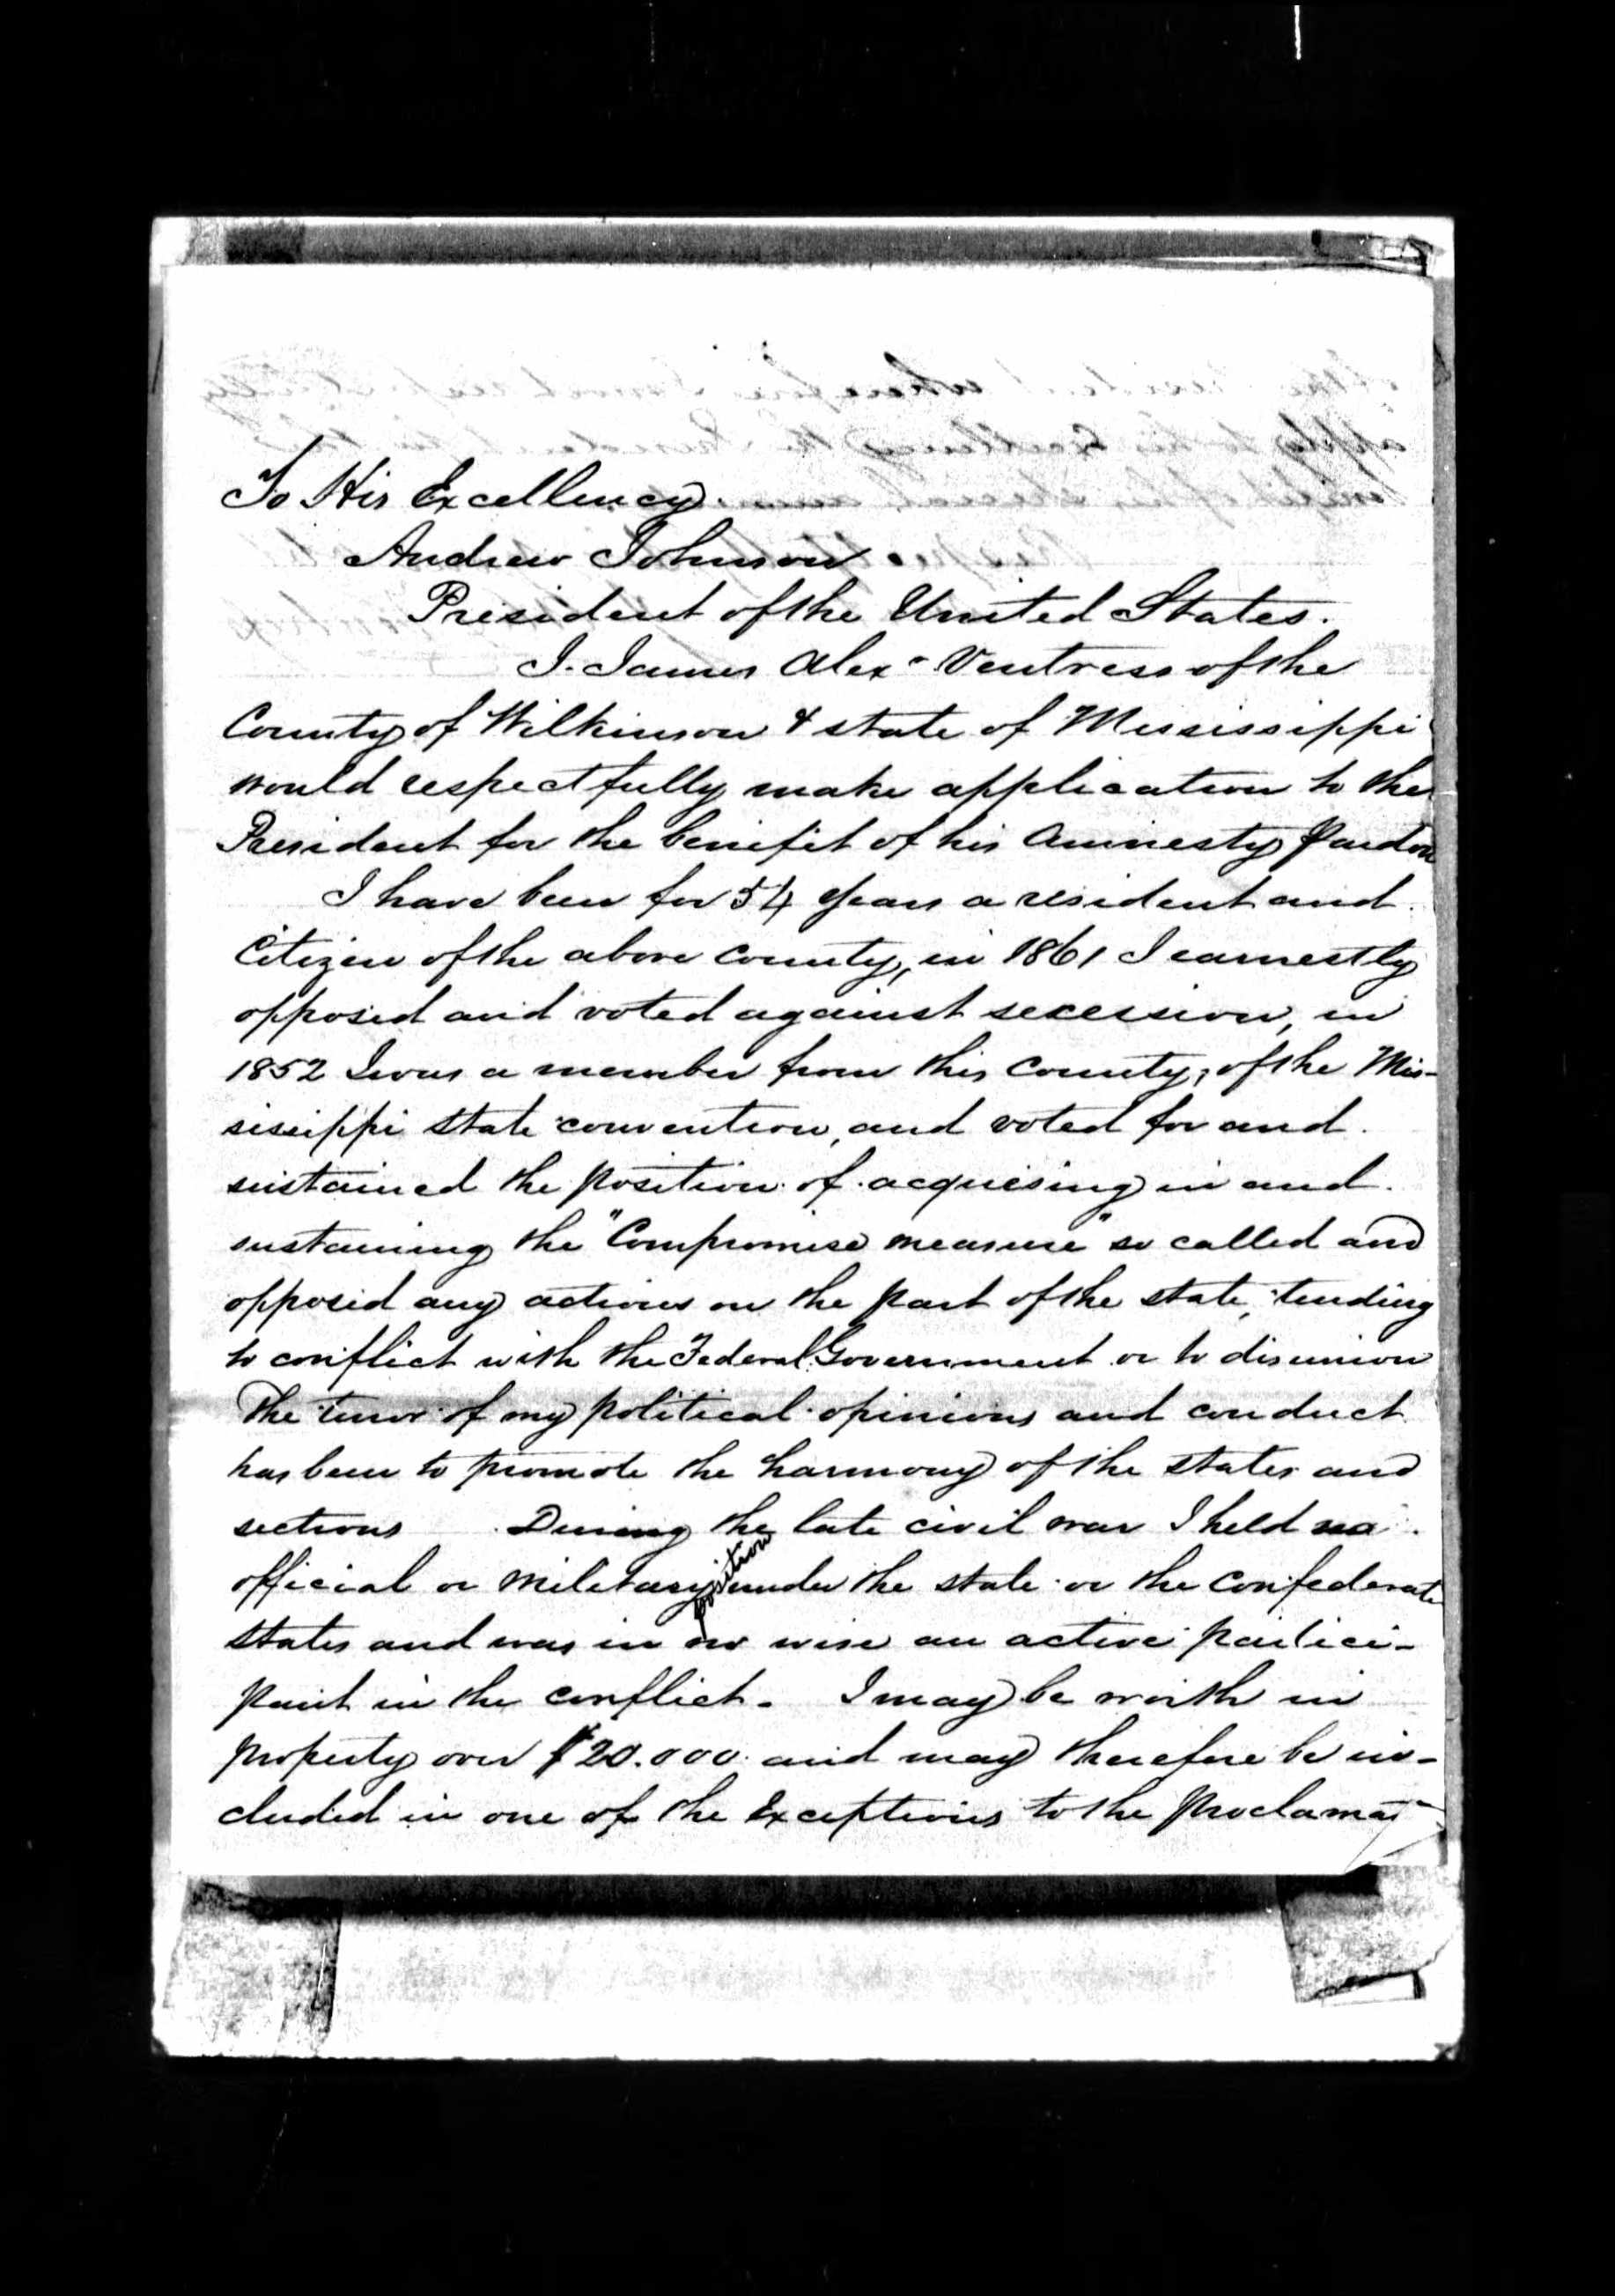 To His Excellency
Andrew Johnson
President of the United States.
I. James Alex. Ventress of the
County of Wilkinson & state of Mississippi
would respectfully make application to the
President for the benifit of his Amnesty Pardon
I have been for 54 years a resident and
Citizen of the above County, in 1861 I earnestly
opposed and voted against secession, in
1852 I was a member from this County, of the Mis-
sissippi State convention, and voted for and
sustained the position of acquiesing in and
sustaining the "Compromise measure" so called and
opposed any actions on the part of the state, tending
to conflict with the Federal Government or to disunion
The tenor of my political opinions and conduct
has been to promote the harmony of the states and
sections During the late civil war I held no
official or military position under the state or the Confederate
States and was in no wise an active partici-
pant in the conflict. I may be worth in
property over $20.000 and may therefore be in-
cluded in one of the Exceptions to the Proclama-